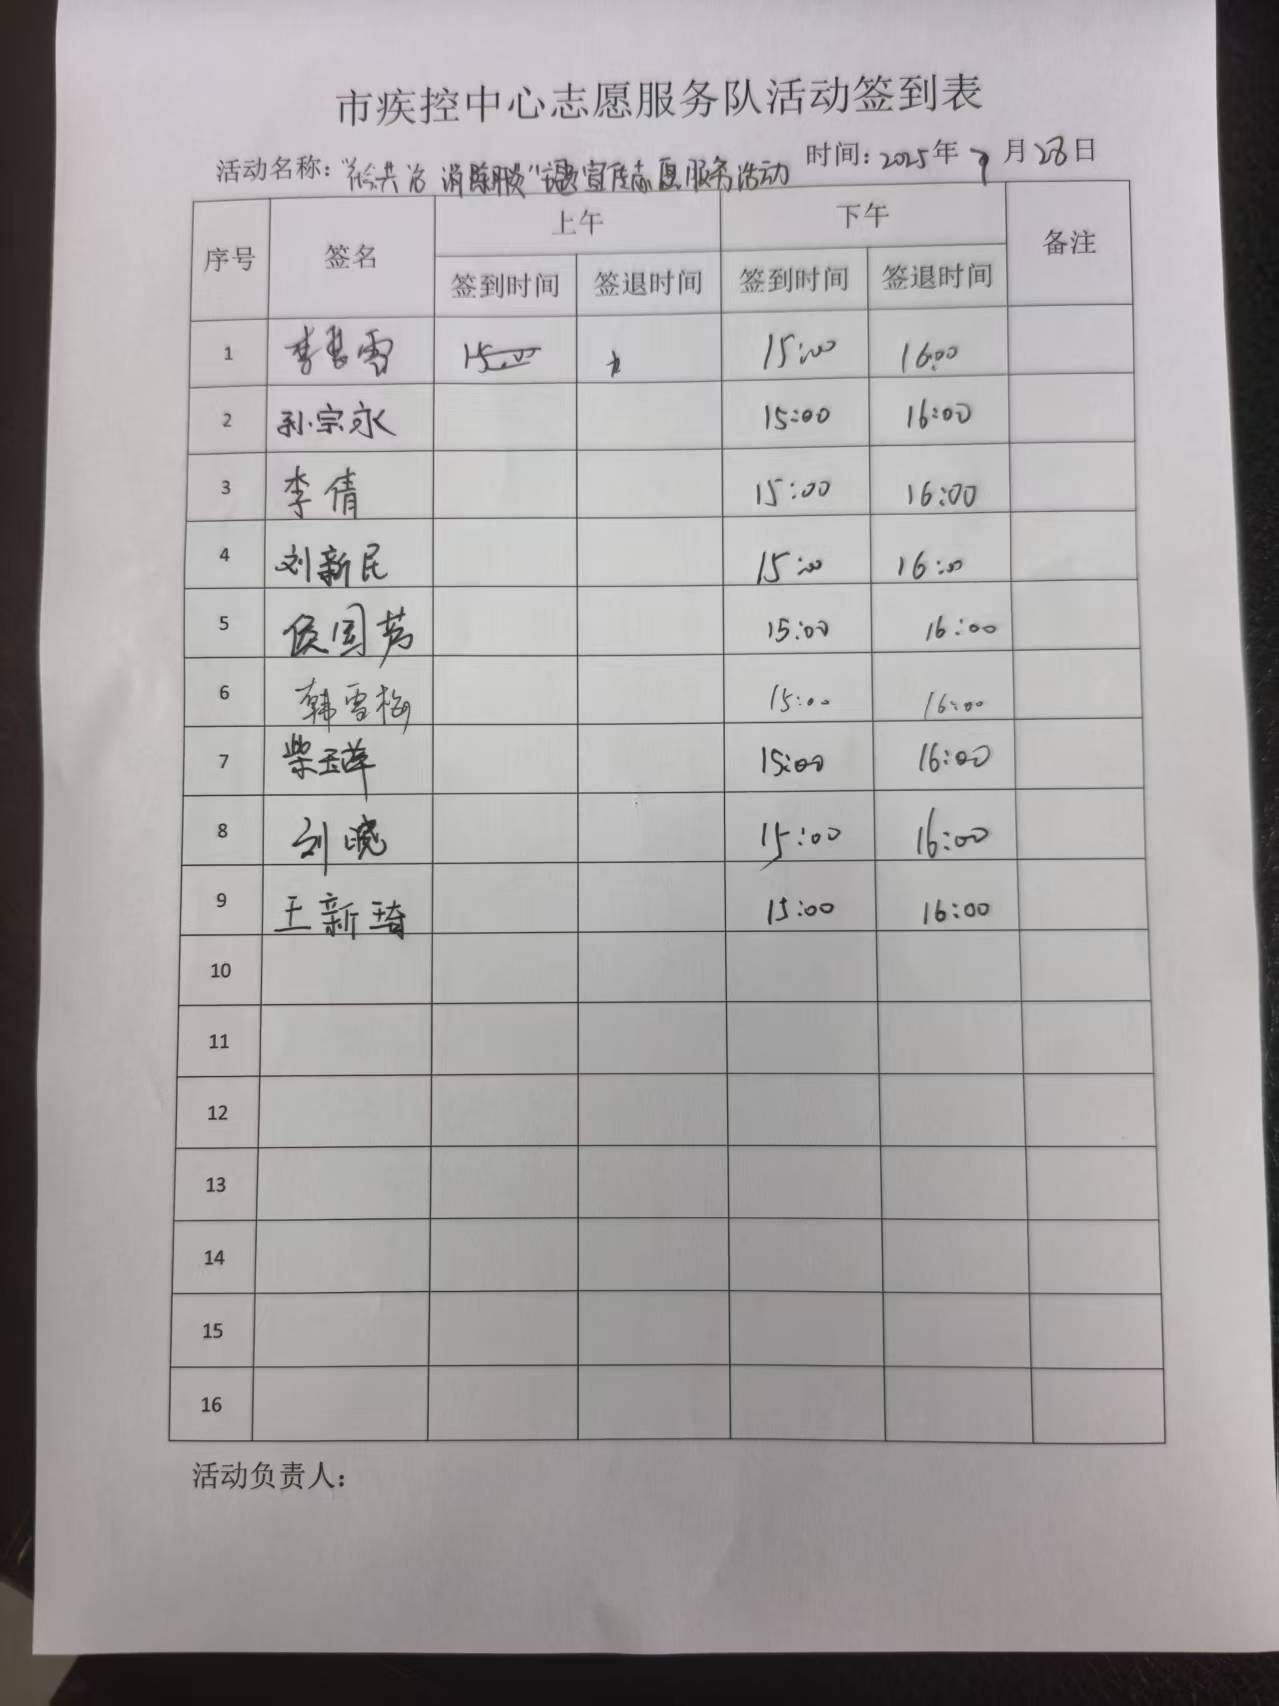 市疾控中心志愿服务队活动签到表
活动名称: 共治 消除 宣传志愿服务活动 时间: 2025年 7月28日
序号 签名 上午 下午 备注
签到时间 签退时间 签到时间 签退时间
1 李 雪 15:00 16:00
2 孙宗永 15:00 16:00
3 李倩 15:00 16:00
4 刘新民 15:00 16:00
5 侯国 15:00 16:00
6 韩雪梅 15:00 16:00
7 柴玉萍 15:00 16:00
8 刘晓 15:00 16:00
9 王新琦 15:00 16:00
10
11
12
13
14
15
16
活动负责人: